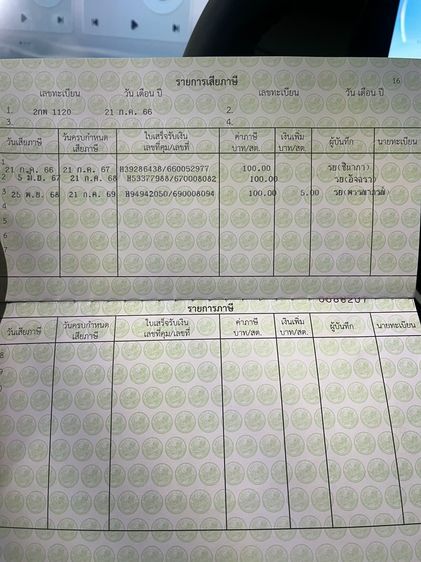 รายการเสียภาษี 16
เลขทะเบียน วัน เดือน ปี เลขทะเบียน วัน เดือน ปี
1. 2กพ 1120 21 ก.ค. 66 2.
3. 4.
วันเสียภาษี วันครบกำหนดเสียภาษี ใบเสร็จรับเงินเลขที่คุม/เลขที่ ค่าภาษีบาท/สต. เงินเพิ่มบาท/สต. ผู้บันทึก นายทะเบียน
1 21 ก.ค. 66 21 ก.ค. 67 H39286438/660052977 100.00
2 5 มิ.ย. 67 21 ก.ค. 68 H53377988/670008082 100.00
3 25 พ.ย. 68 21 ก.ค. 69 H94942050/690008094 100.00 5.00
4
5
6
7
รายการภาษี
วันเสียภาษี วันครบกำหนดเสียภาษี ใบเสร็จรับเงินเลขที่คุม/เลขที่ ค่าภาษีบาท/สต. เงินเพิ่มบาท/สต. ผู้บันทึก นายทะเบียน
8
9